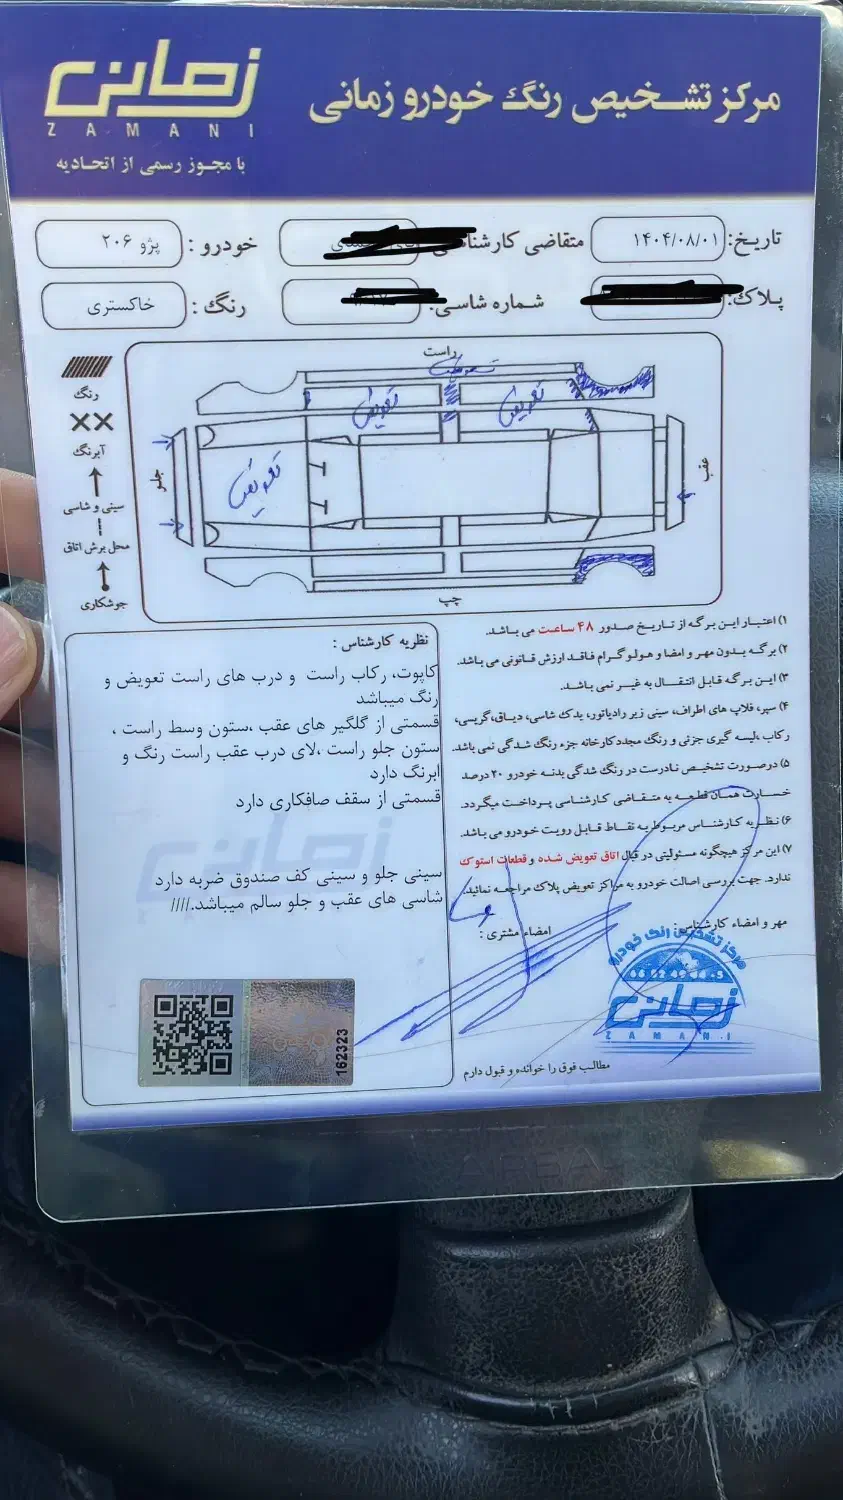 مرکز تشخیص رنگ خودرو زمانی
زمانی
ZAMANI
با مجوز رسمی از اتحادیه
تاریخ: ۱۴۰۴/۰۸/۰۱ متقاضی کارشناسی: خودرو : پژو ۲۰۶
پلاک: شماره شاسی: رنگ : خاکستری
راست
تعویض
تعویض
تعویض
تعویض
جلو
عقب
چپ
رنگ
آبرنگ
سینی و شاسی
محل برش اتاق
جوشکاری
۱) اعتبار این برگه از تاریخ صدور ۴۸ ساعت می باشد.
۲) برگه بدون مهر و امضا و هولوگرام فاقد ارزش قانونی می باشد.
۳) این برگه قابل انتقال به غیر نمی باشد.
۴) سپر، قلاپ های اطراف، سینی زیر رادیاتور، یدک شاسی، دیاق، گریسی،
رکاب ،لیسه گیری جزئی و رنگ مجدد کارخانه جزء رنگ شدگی نمی باشد.
۵) درصورت تشخیص نادرست در رنگ شدگی بدنه خودرو ۲۰ درصد
خسارت همان قطعه به متقاضی کارشناسی پرداخت میگردد.
۶) نظریه کارشناس مربوط به نقاط قابل رویت خودرو می باشد.
۷) این مرکز هیچگونه مسئولیتی در قبال اتاق تعویض شده و قطعات استوک
ندارد. جهت بررسی اصالت خودرو به مراکز تعویض پلاک مراجعه نمائید.
مهر و امضاء کارشناس:
امضاء مشتری :
مرکز تشخیص رنگ خودرو
زمانی
ZAMANI
مطالب فوق را خوانده و قبول دارم
نظریه کارشناس :
کاپوت، رکاب راست و درب های راست تعویض و
رنگ میباشد
قسمتی از گلگیر های عقب ،ستون وسط راست ،
ستون جلو راست ،لای درب عقب راست رنگ و
ابرنگ دارد
قسمتی از سقف صافکاری دارد
زمانی
سینی جلو و سینی کف صندوق ضربه دارد
شاسی های عقب و جلو سالم میباشد.////
162323
AIRBAG